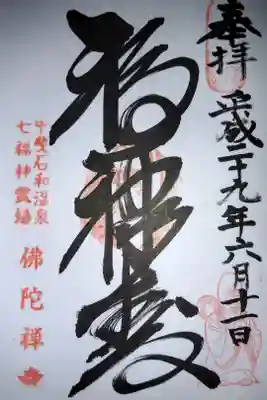 奉拝
平成二十九年六月十一日
福禄寿
石和温泉
七福神霊場
佛陀禅寺